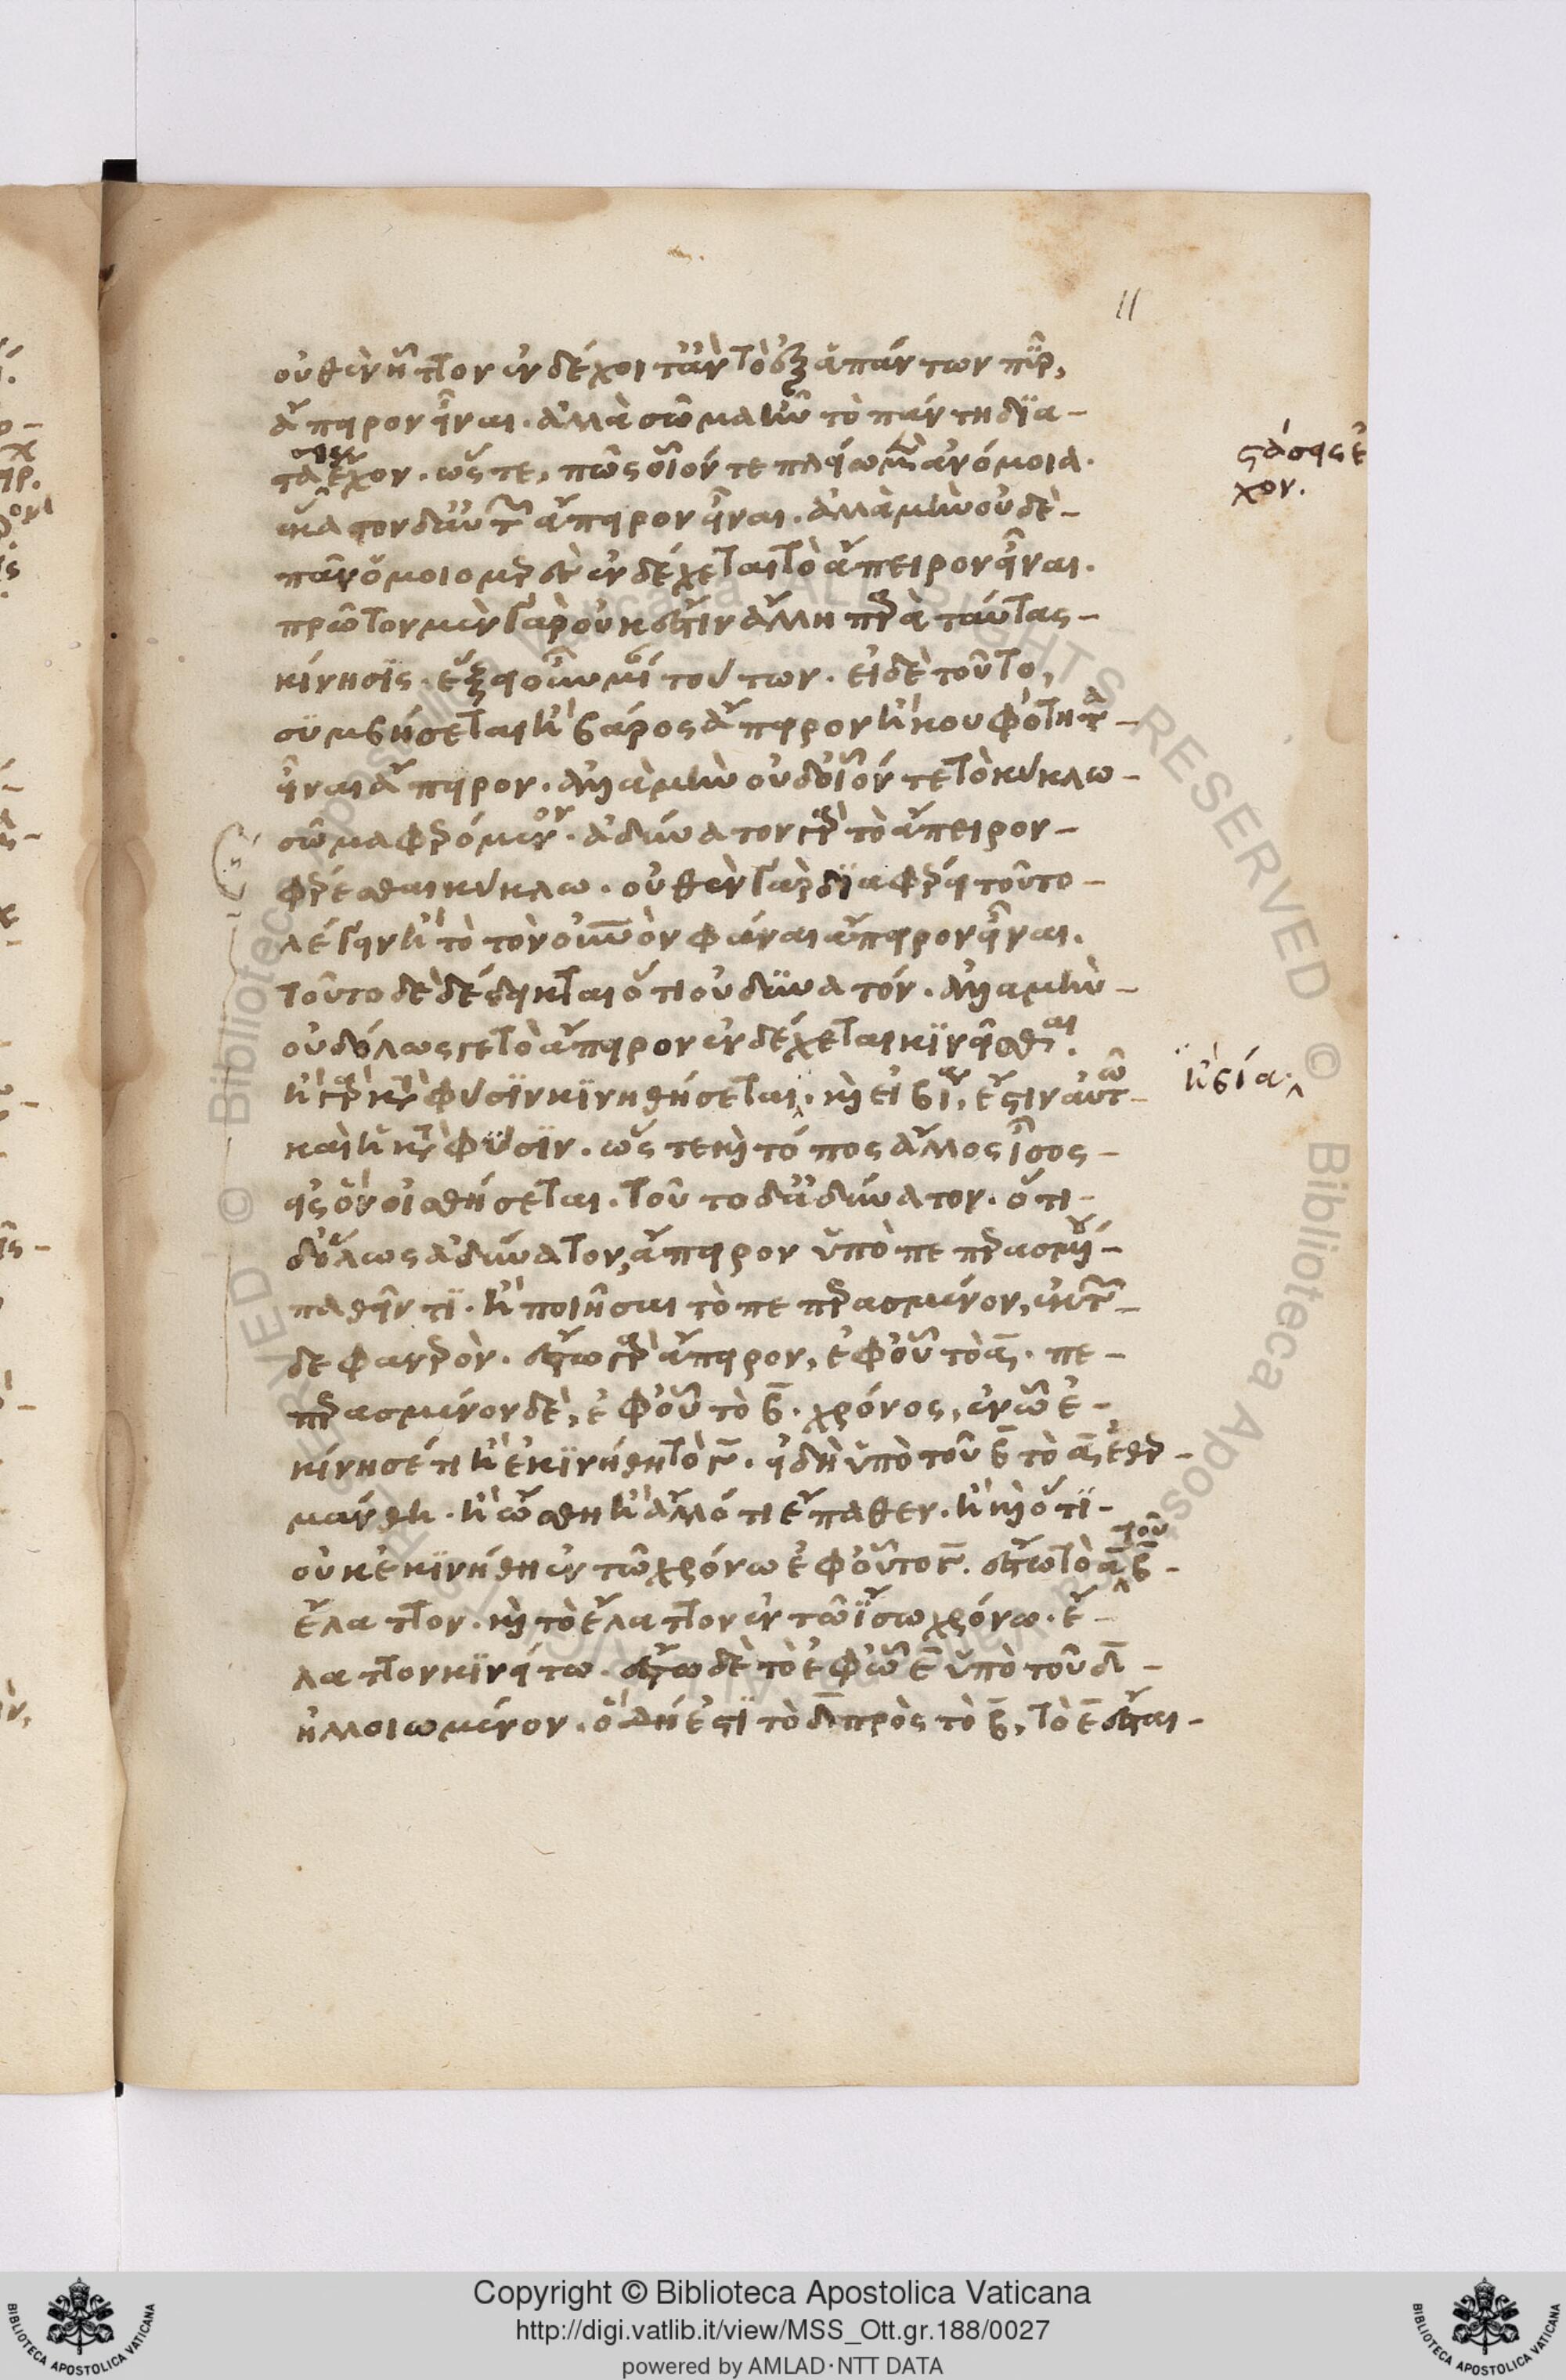 11
οὐθὲν ἧττον ἐνδέχοιτ ἂν τὸ ἐξ ἁπάντων πῦρ,
ἄπειρον εἶναι. ἀλλὰ σῶμα ἦν τὸ πάντη δια-
τάσεις ἔχον. ὥστε, πῶς οἷόν τε πλείω μὲν ἀνόμοια.
ἕκαστον δ αὐτῶν ἄπειρον εἶναι. ἀλλὰ μὴν οὐδὲ-
πᾶν ὁμοιομερὲς ἐνδέχεται τὸ ἄπειρον εἶναι.
πρῶτον μὲν γὰρ οὐκ ἔστιν ἄλλη παρὰ ταύτας-
κίνησις. ἕξει οὖν μίαν τούτων. εἰ δὲ τοῦτο,
συμβήσεται ἢ βάρος ἄπειρον ἢ κουφότητα-
εἶναι ἄπειρον. ἀλλὰ μὴν οὐδ οἷόν τε τὸ κύκλω-
σῶμα φερόμενον. ἀδύνατον γὰρ τὸ ἄπειρον-
φέρεσθαι κύκλω. οὐθὲν γὰρ διαφέρει τοῦτο-
λέγειν ἢ τὸ τὸν οὐρανὸν φάναι ἄπειρον εἶναι.
τοῦτο δὲ δέδεικται ὅτι οὐ δυνατόν. ἀλλὰ μὴν-
οὐδ ὅλως γε τὸ ἄπειρον ἐνδέχεται κινεῖσθαι.
ἢ γὰρ κατὰ φύσιν κινηθήσεται. καὶ εἰ βίαν, ἔστιν αὐτῶ-
καὶ ἡ κατὰ φύσιν. ὥστε καὶ τόπος ἄλλος ἴσος-
εἰς ὃν οἰσθήσεται. τοῦτο δ ἀδύνατον. ὅτι-
δ ὅλως ἀδύνατον, ἄπειρον ὑπὸ πεπερασμένου-
παθεῖν τι. ἢ ποιῆσαι τὸ πεπερασμένον, ἐκ τῶν-
δε φανερὸν. ἔστω γὰρ ἄπειρον, ἐφ οὗ τὸ α. πε-
περασμένον δὲ, ἐφ οὗ τὸ β. χρόνος, ἐν ὧ ἐ-
κίνησέ τι ἢ ἐκινήθη τὸ γ. εἰ δὴ ὑπὸ τοῦ β τὸ α, ἐθερ-
μάνθη. ἢ ὤσθη ἢ ἄλλό τι ἔπαθεν. ἢ καὶ ὅτι-
οὐκ ἐκινήθη ἐν τῶ χρόνω ἐφ οὗ τὸ γ. ἔστω τὸ δ τοῦ β-
ἔλαττον. καὶ τὸ ἔλαττον ἐν τῶ ἴσω χρόνω. ἔ-
λαττον κινείτω. ἔστω δὲ τὸ ἐφ ὧ ε ὑπὸ τοῦ δ-
ἠλλοιωμένον. ὃ δή ἐστι τὸ δ πρὸς τὸ β, τὸ ε ἔσται-
στάσεις ἔ
χον.
ἢ βία.
Copyright © Biblioteca Apostolica Vaticana
http://digi.vatlib.it/view/MSS_Ott.gr.188/0027
powered by AMLAD·NTT DATA
BIBLIOTECA APOSTOLICA VATICANA
BIBLIOTECA APOSTOLICA VATICANA